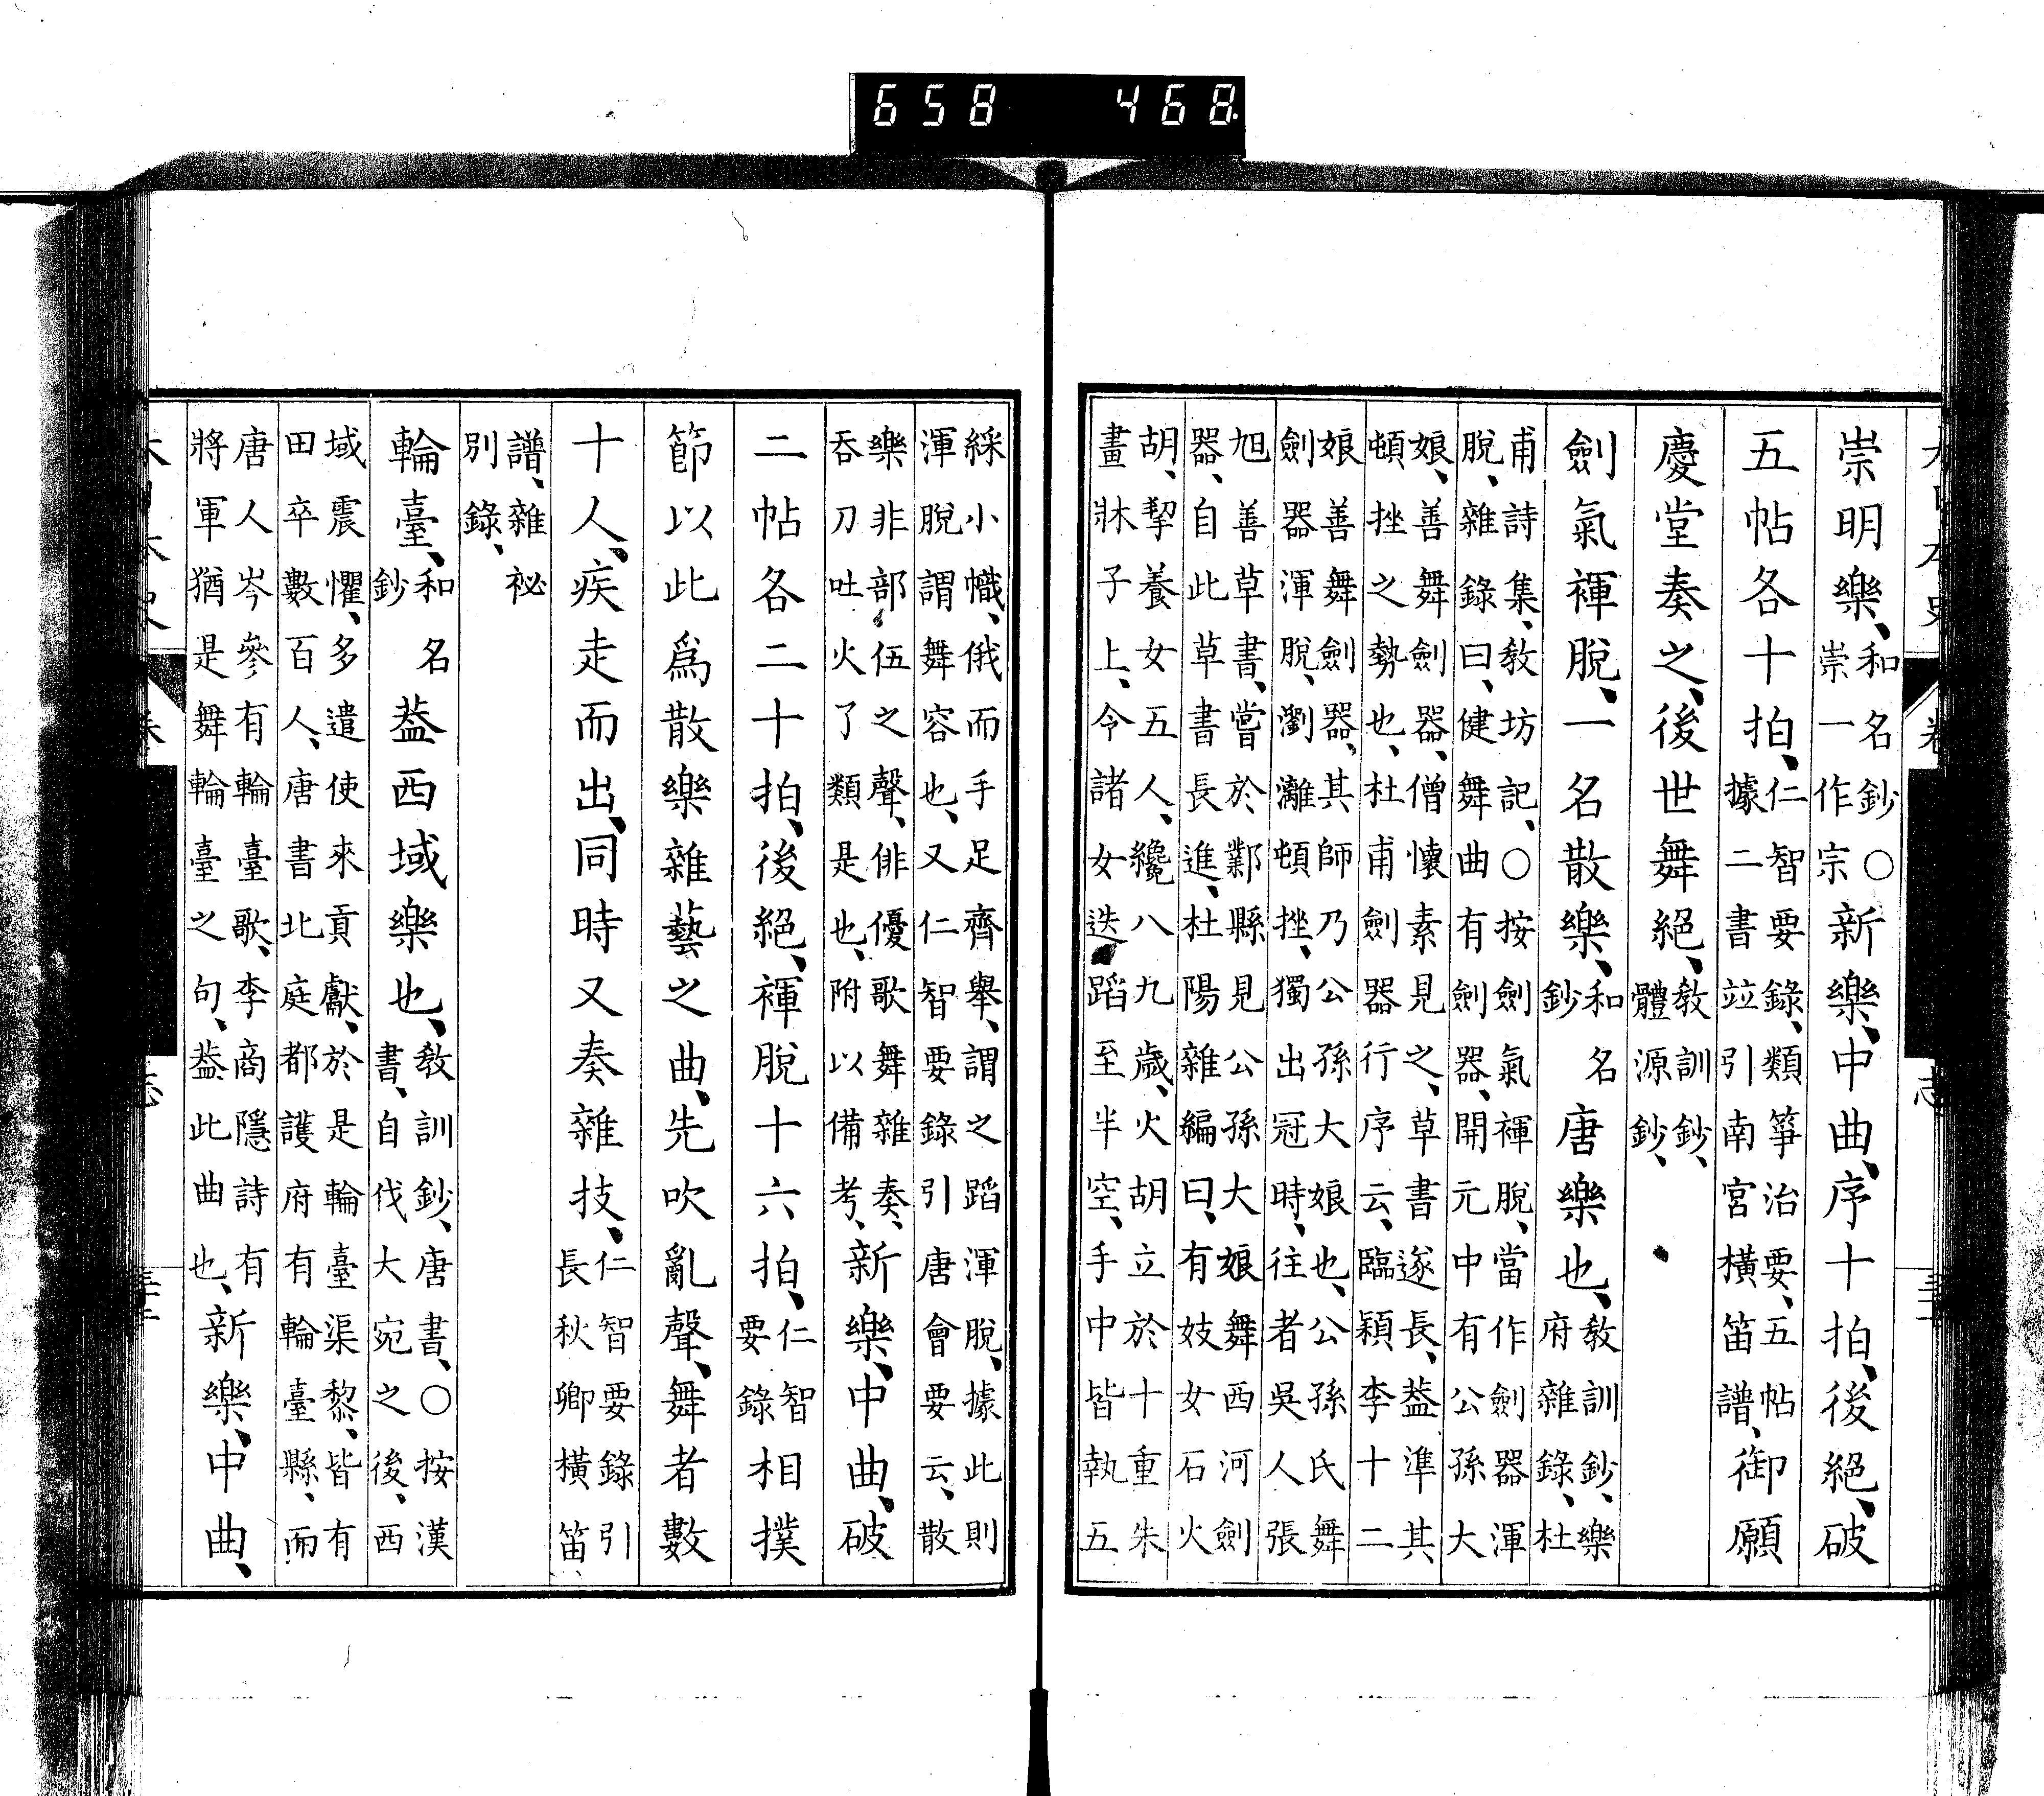 崇明樂、和名鈔○崇一作宗新樂、中曲、序十拍、後絕、破
五帖各十拍、仁智要錄、類箏治要、五帖據二書竝引南宮橫笛譜、御願
慶堂奏之、後世舞絕、教訓鈔、體源鈔、
劍氣褌脫、一名散樂、和名鈔唐樂也、教訓鈔、樂府雜錄、杜
甫詩集、教坊記、○按劍氣褌脫、當作劍器渾
脫、雜錄曰、健舞曲有劍器、開元中有公孫大
娘、善舞劍器、僧懷素見之、草書遂長、葢準其
頓挫之勢也、杜甫劍器行序云、臨穎李十二
娘善舞劍器、其師乃公孫大娘也、公孫氏舞
劍器渾脫、瀏灕頓挫、獨出冠時、往者吳人張
旭善草書、嘗於鄴縣見公孫大娘舞西河劍
器、自此草書長進、杜陽雜編曰、有妓女石火
胡、挈養女五人、纔八九歲、火胡立於十重朱
畫牀子上、令諸女迭蹈至半空、手中皆執五
綵小幟、俄而手足齊舉、謂之蹈渾脫、據此則
渾脫謂舞容也、又仁智要錄引唐會要云、散
樂非部伍之聲、俳優歌舞雜奏、吞刀吐火了類是也、附以備考、新樂、中曲、破
二帖各二十拍、後絕、褌脫十六拍、仁智要錄相撲
節以此爲散樂雜藝之曲、先吹亂聲、舞者數
十人、疾走而出、同時又奏雜技、仁智要錄引長秋卿橫笛
譜、雜祕別錄、
輪臺、和名鈔葢西域樂也、教訓鈔、唐書、○按漢書、自伐大宛之後、西
域震懼、多遣使來貢獻、於是輪臺渠黎、皆有
田卒數百人、唐書北庭都護府有輪臺縣、而
唐人岑參有輪臺歌、李商隱詩有將軍猶是舞輪臺之句、葢此曲也、新樂、中曲、
658 468